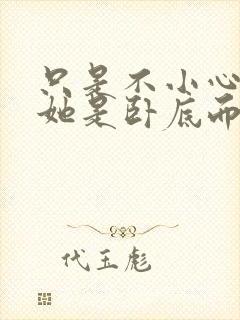 只是不小心
她是卧底而
代玉彪